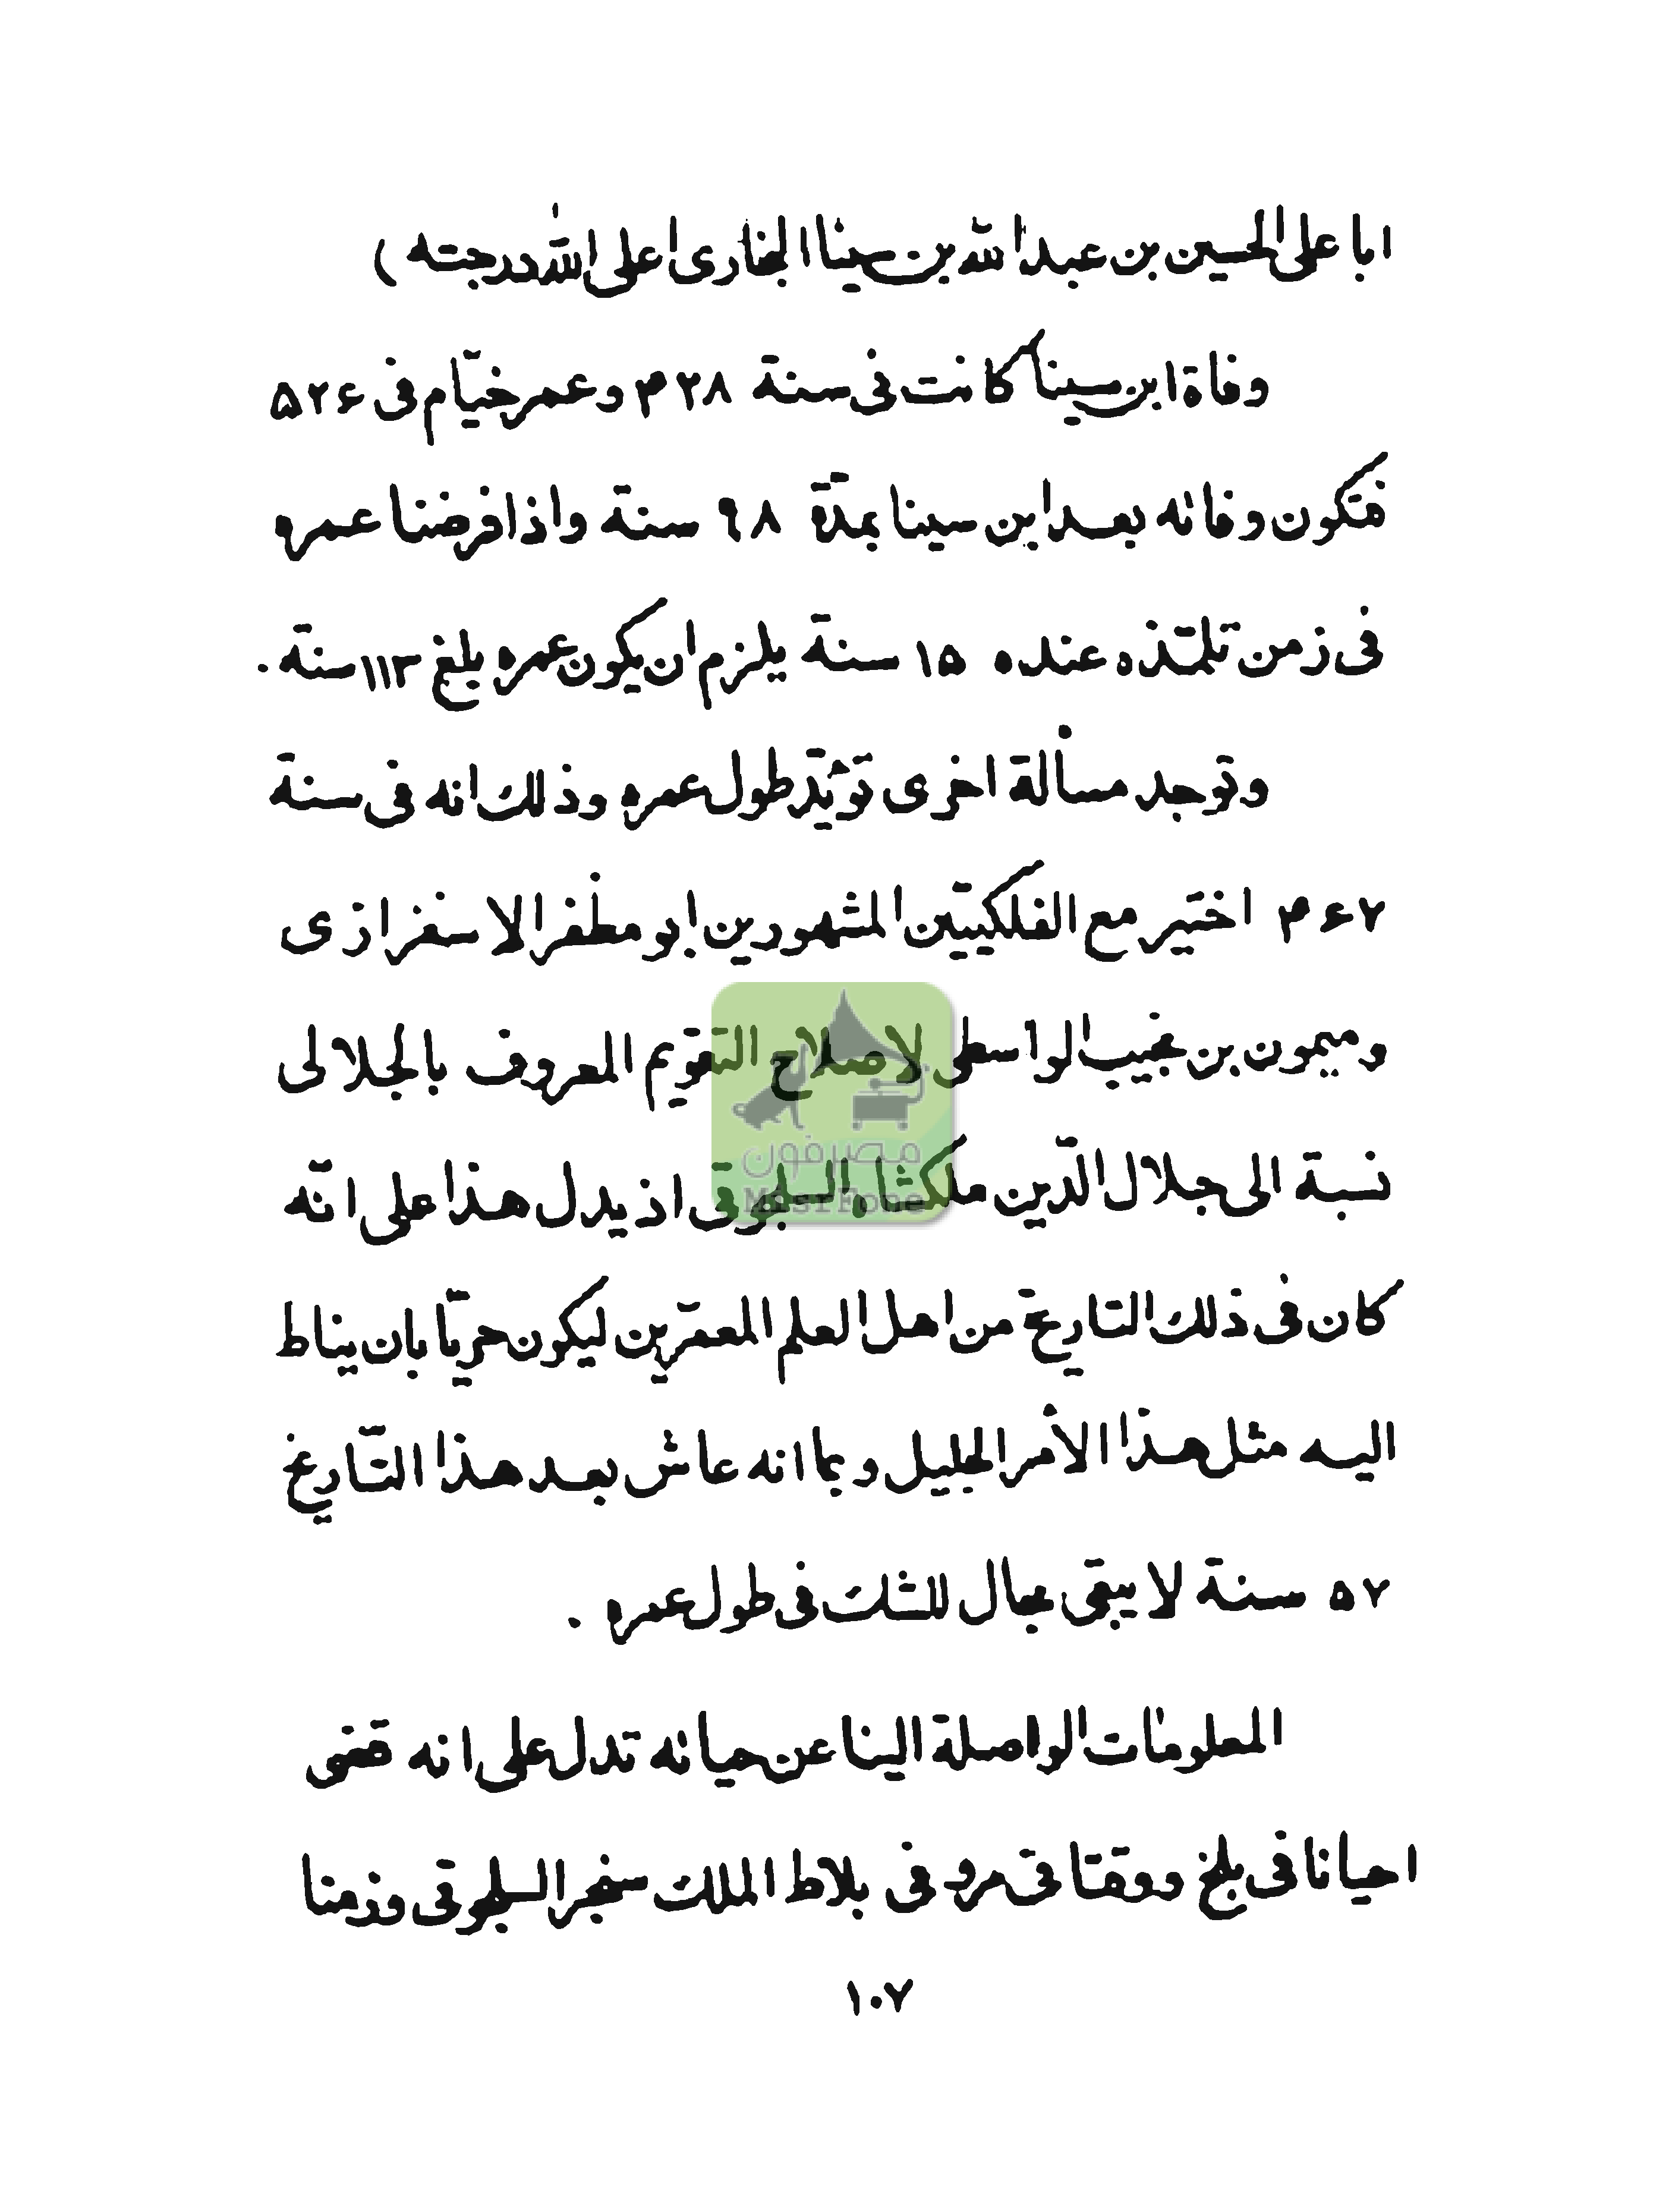 ابا على الحسين بن عبدالله بن سينا البخارى اعلى الله درجته )
وفاة ابن سينا كانت فى سنة ۴۲۸ وعمر خيّام فى ۵۲۶
فتكون وفاته بعد ابن سينا بمدّة ۹۸ سنة واذا فرضنا عمره
فى زمن تلمّذه عنده ۱۵ سنة يلزم ان يكون عمره بلغ ۱۱۳ سنة .
وتوجد مسألة اخرى تؤيّد طول عمره وذلك انه فى سنة
۴۶۷ اختير مع الفلكيّين المشهورين ابو مظفر الاسفزازى
وميمون بن نجيب الواسطى لاصلاح التقويم المعروف بالجلالى
نسبة الى جلال الدّين ملكشاه السلجوقى اذ يدل هذا على انّه
كان فى ذلك التاريخ من اهل العلم المعمّرين ليكون حريّا بان يناط
اليه مثل هذا الأمر الجليل وبما انه عاش بعد هذا التّاريخ
۵۷ سنة لا يبقى مجال للشك فى طول عمره .
المعلومات الواصلة الينا عن حياته تدل على انه قضى
احيانا فى بلخ ووقتا فى مرو فى بلاط الملك سنجر السلجوقى وزمنا
۱۰۷
مصرفون
MisrFone